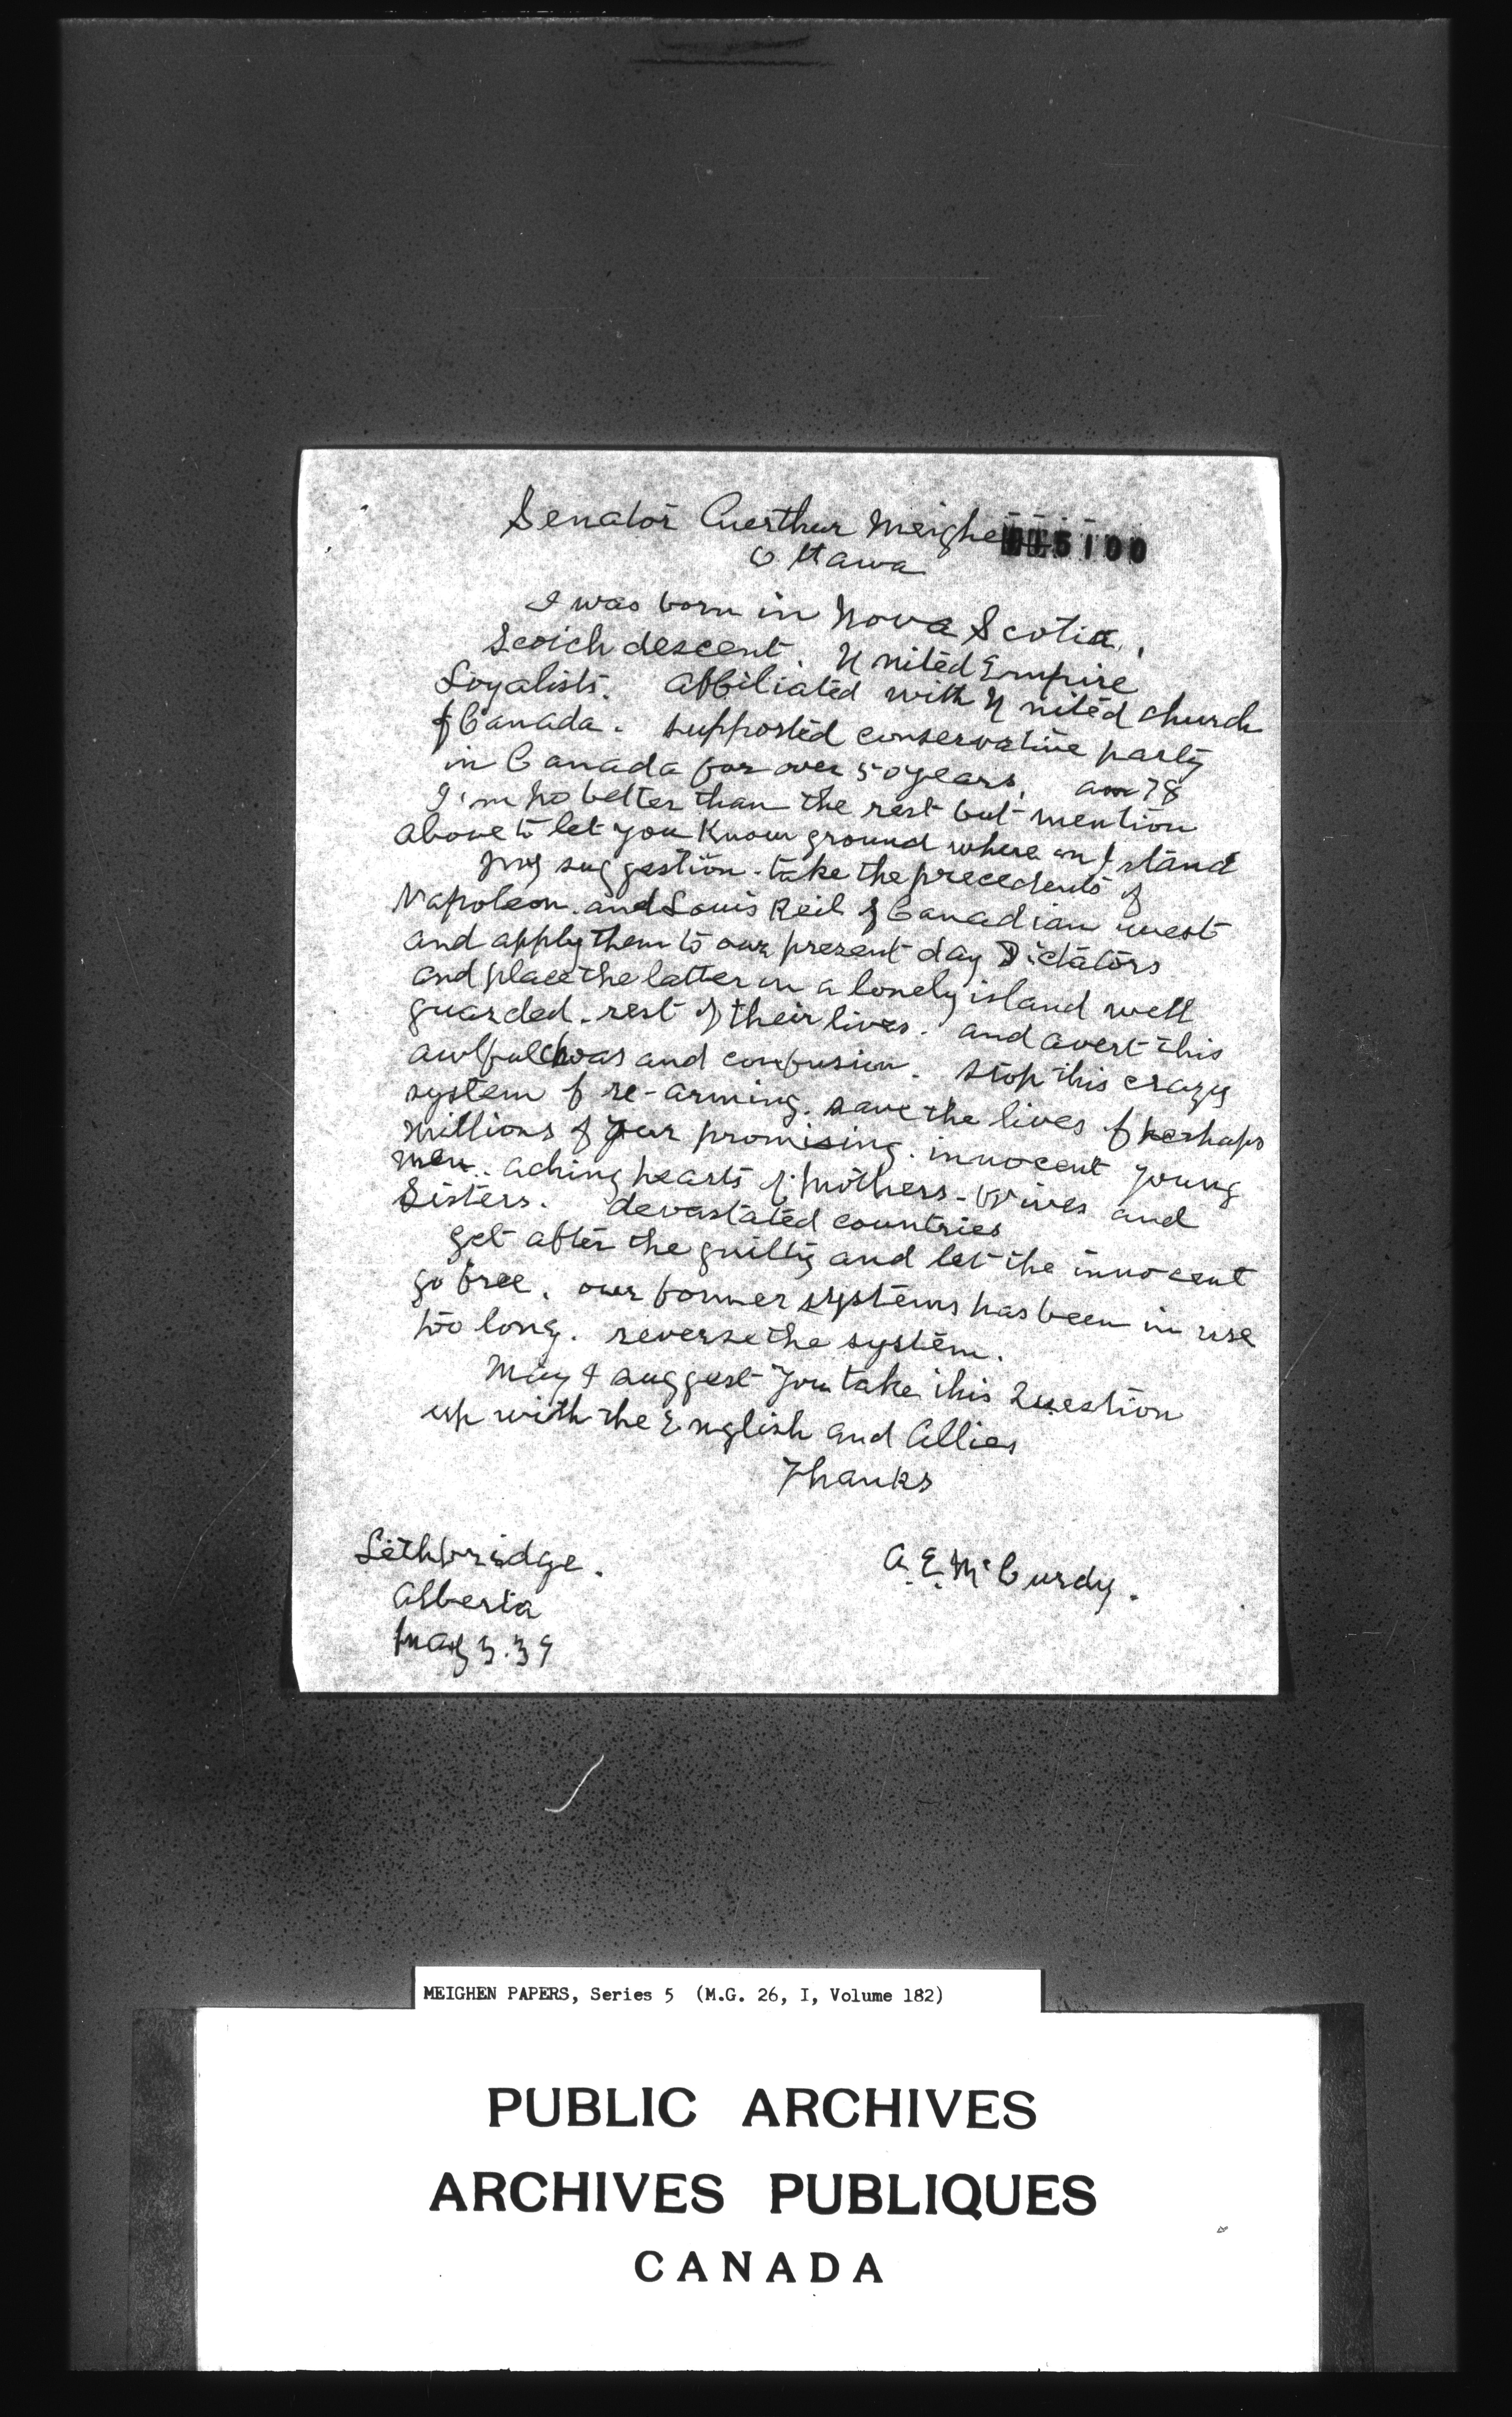 Senator Auerthur Meighen
5100
Ottawa
I was born in Nova Scotia,
Scoich descent. United Empire
Loyalists. affiliated with United church
of Canada. supported conservative party
in Canada for over 50 years. am 78
I'm no better than the rest but mention
above to let you know ground where on I stand
my suggestion. take the precedents of
Napoleon. and Louis Reil of Canadian west
and apply them to our present day Dictators
and place the latter on a lonely island well
guarded. rest of their lives. and avert this
awlful and confusion. stop this crazy
system of re-arming. save the lives of perhaps
millions of our promising. innocent young
men. aching hearts of mothers-Wives and
Sisters. devastated countries
get after the guilty and let the innocent
go free. our former systems has been in use
too long. reverse the system.
May I suggest you take this Question
up with the English and Allies
Thanks
Lethbridge.
A. E. McCurdy.
Alberta
May 3.39
MEIGHEN PAPERS, Series 5 (M.G. 26, I, Volume 182)
PUBLIC ARCHIVES
ARCHIVES PUBLIQUES
CANADA